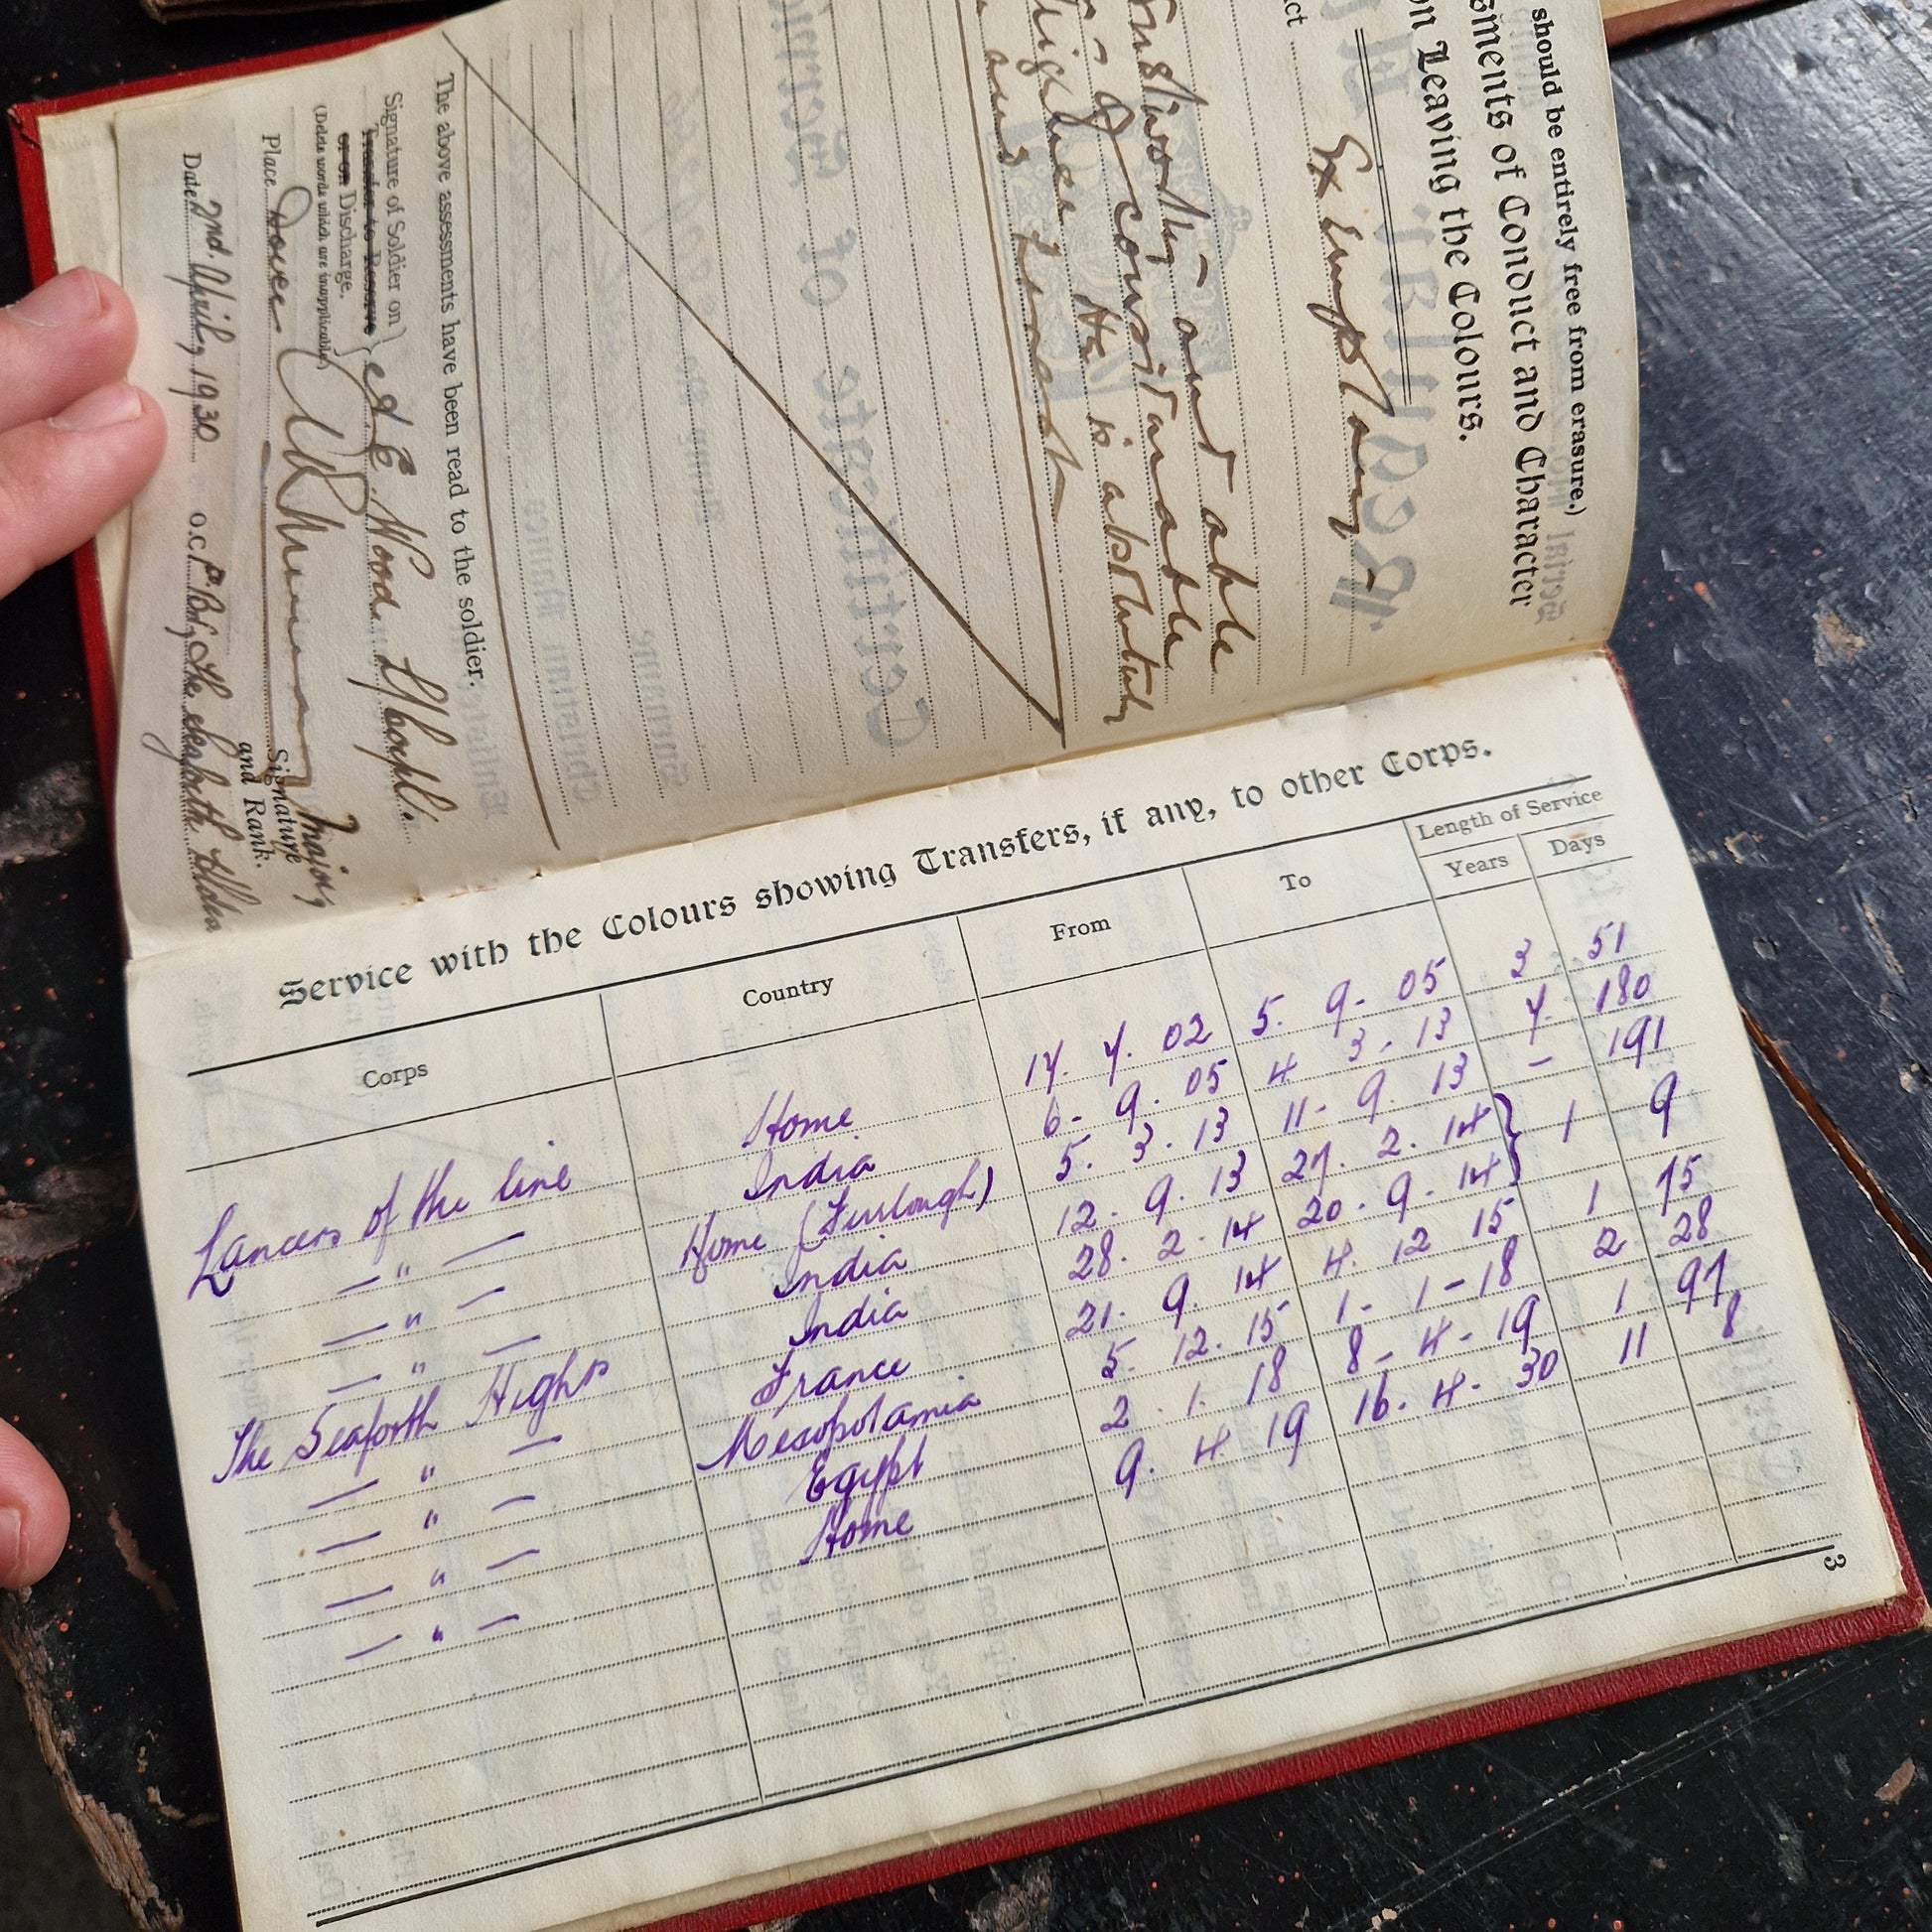 should be entirely free from erasure.)
sments of Conduct and Character
on Leaving the Colours.
ct Exemplary -
Trustworthy - and able
of considerable
He is absolutely
and honest
The above assessments have been read to the soldier.
Signature of Soldier on
Transfer to Reserve
or on Discharge.
(Delete words which are inapplicable)
E. Wood
Place Dover
Major,
Signature
and Rank.
Date 2nd. April, 1930 O.C. The Seaforth Hldrs
Service with the Colours showing Transfers, if any, to other Corps.
Corps Country From To Length of Service
Years Days
Lancers of the line Home 17. 7. 02 5. 9. 05 3 51
— " — India 6 - 9. 05 4 3. 13 7. 180
— " — Home (Furlough) 5. 3. 13 11 - 9. 13 - 191
— " — India 12. 9. 13 27. 2. 14 } 1 9
The Seaforth Highrs India 28. 2. 14 20. 9. 14
— " — France 21. 9. 14 4. 12 15 1 75
— " — Mesopotamia 5. 12. 15 1 - 1 - 18 2 28
— " — Egypt 2. 1. 18 8 - 4 - 19 1 97
— " — Home 9. 4 19 16. 4 - 30 11 8
3